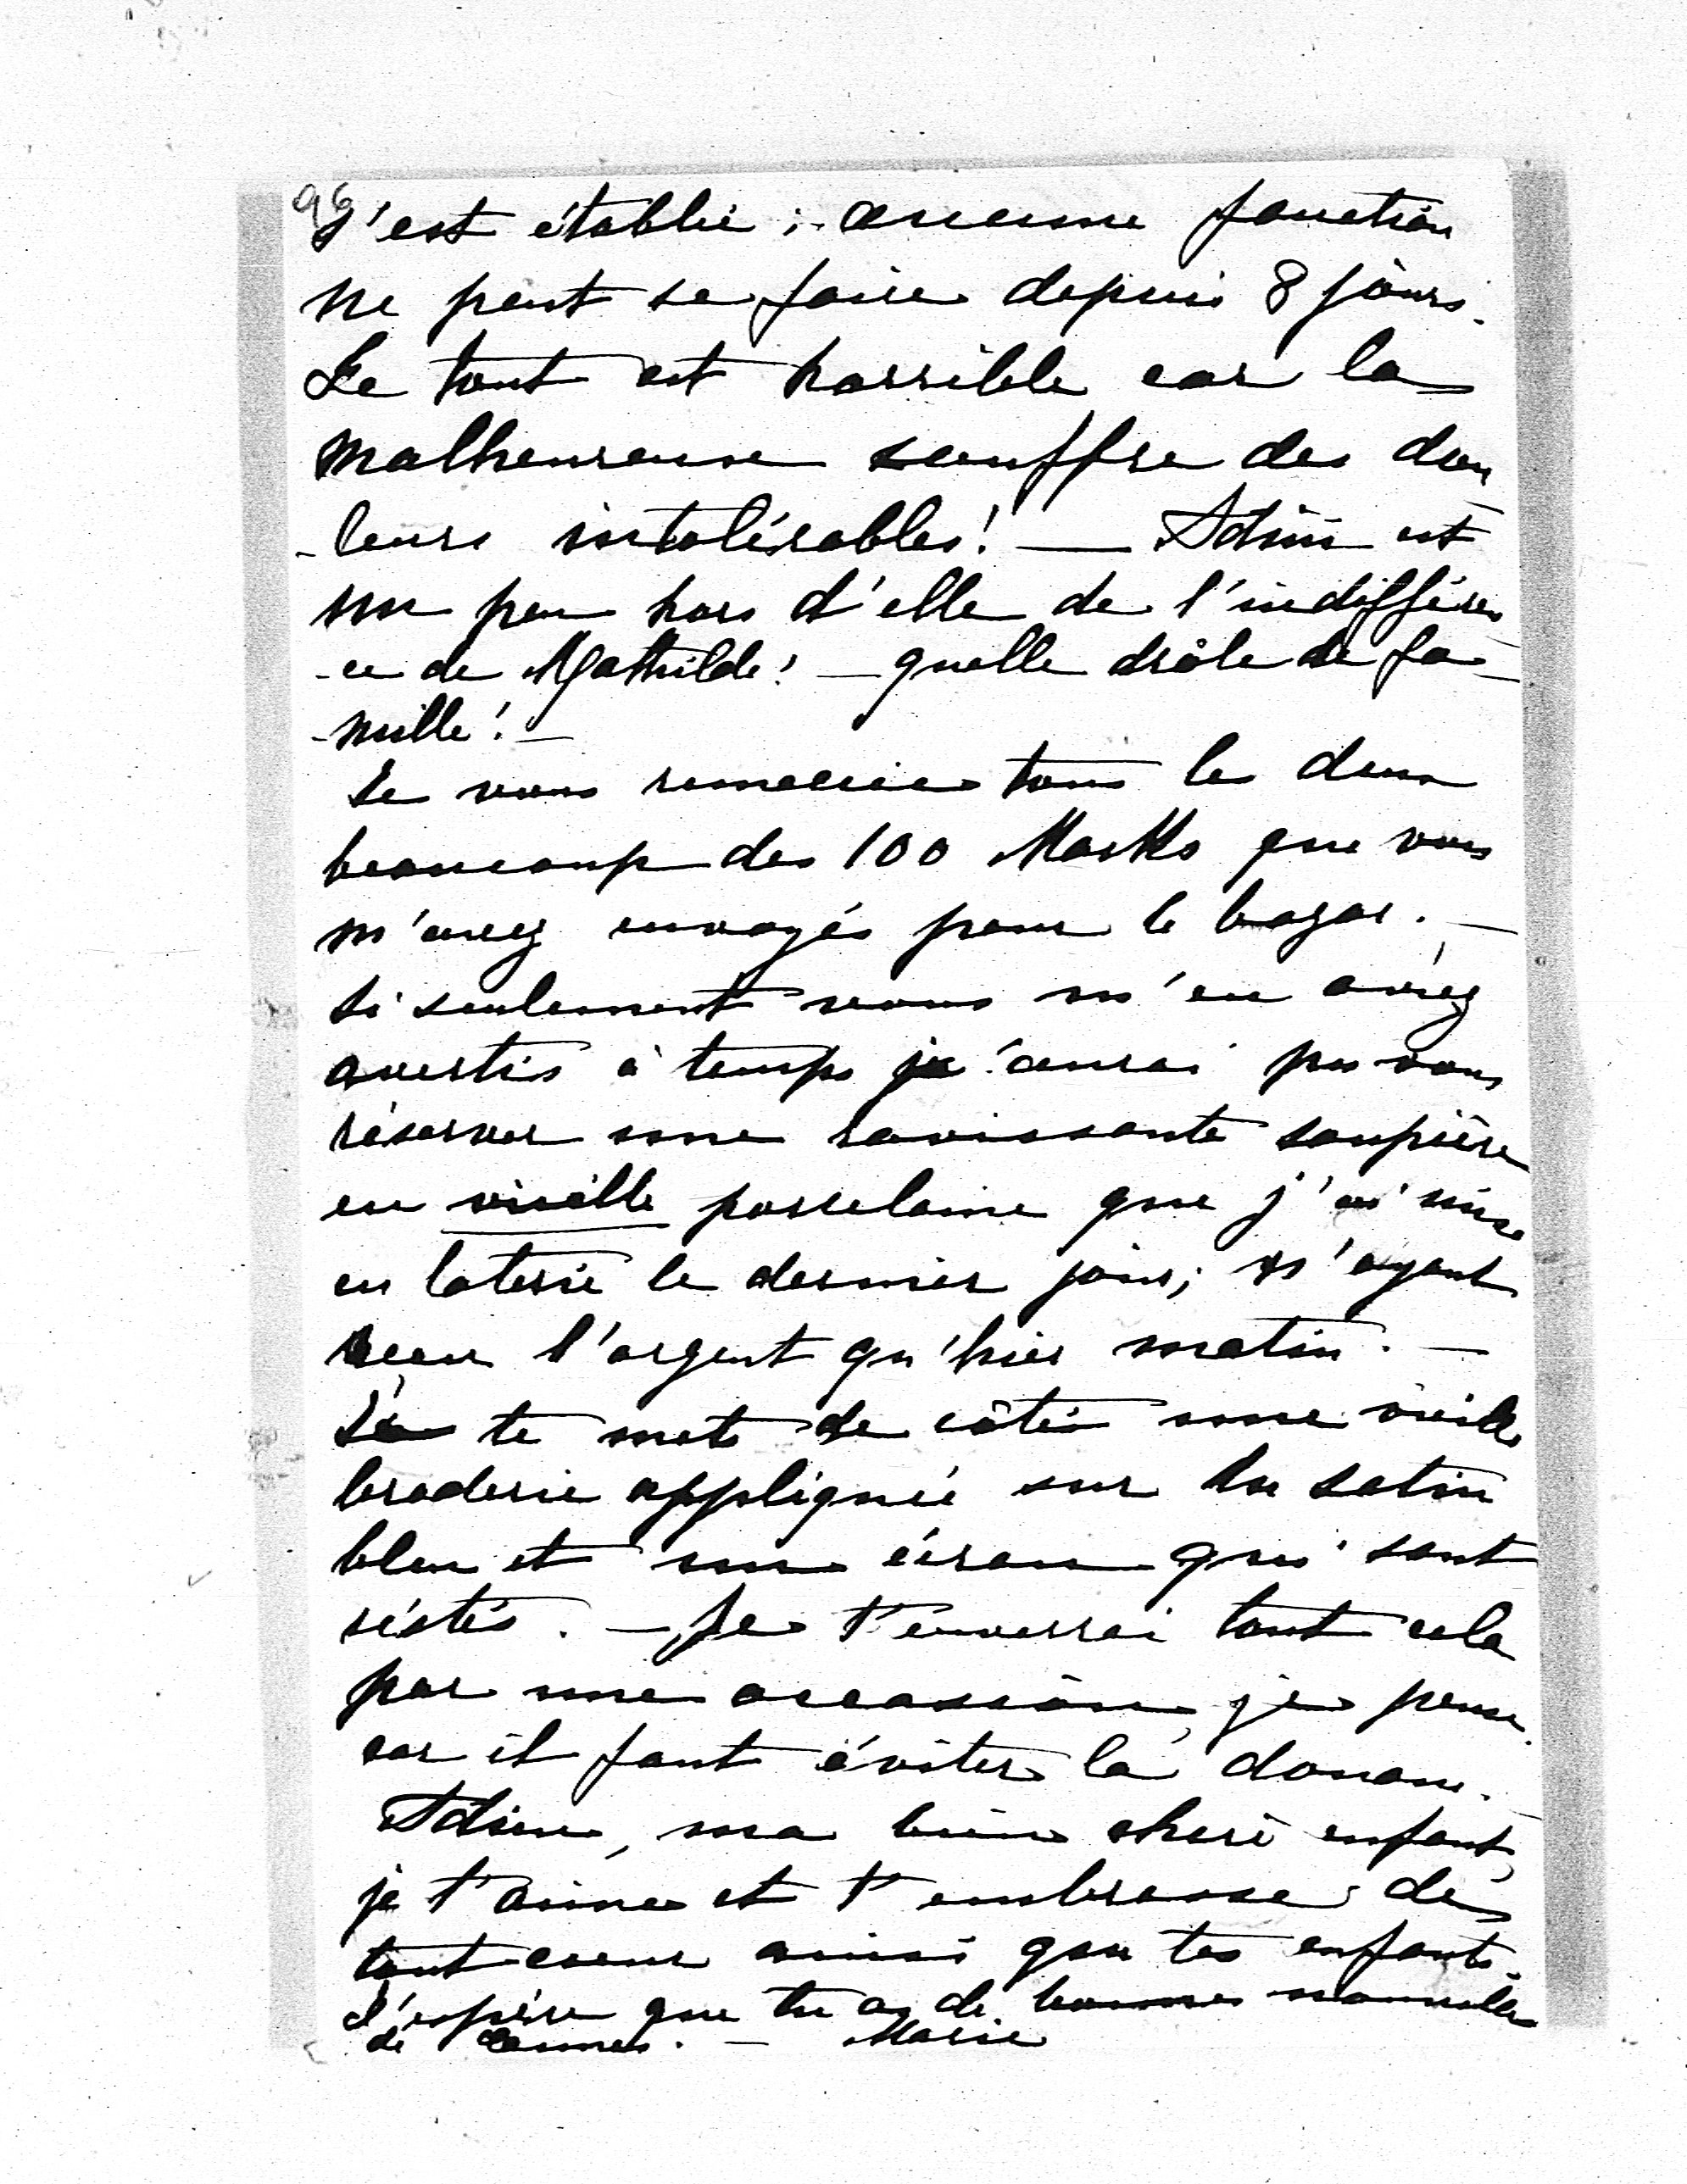 96
s'est établie ; aucune fonction
ne peut se faire depuis 8 jours.
Le tout est horrible car la
malheureuse souffre des dou
-leurs intolérables! — Adini est
un peu hors d'elle de l'indifféren
-ce de Mathilde! — quelle drôle de fa-
-mille! —
Je vous remercie tous les deux
beaucoup des 100 Marks que vous
m'avez envoyés pour le bazar. —
Si seulement vous m'en aviez
avertis à temps j'aurai pu vous
réserver une ravissante soupière
en vieille porcelaine que j'ai mise
en loterie le dernier jour; n'ayant
recu l'argent qu'hier matin. —
Je te mets de côté une vieille
broderie appliquée sur du satin
bleu et un écran qui sont
réstés. — Je t'enverrai tout cela
par une occassion, je pense
car il faut éviter la douane.
Adieu, ma bien cheré enfant,
je t'aime et t'embrasse de
tout coeur ainsi que tes enfants.
J'espère que tu as de bonnes nouvelles
de Cannes. — Marie